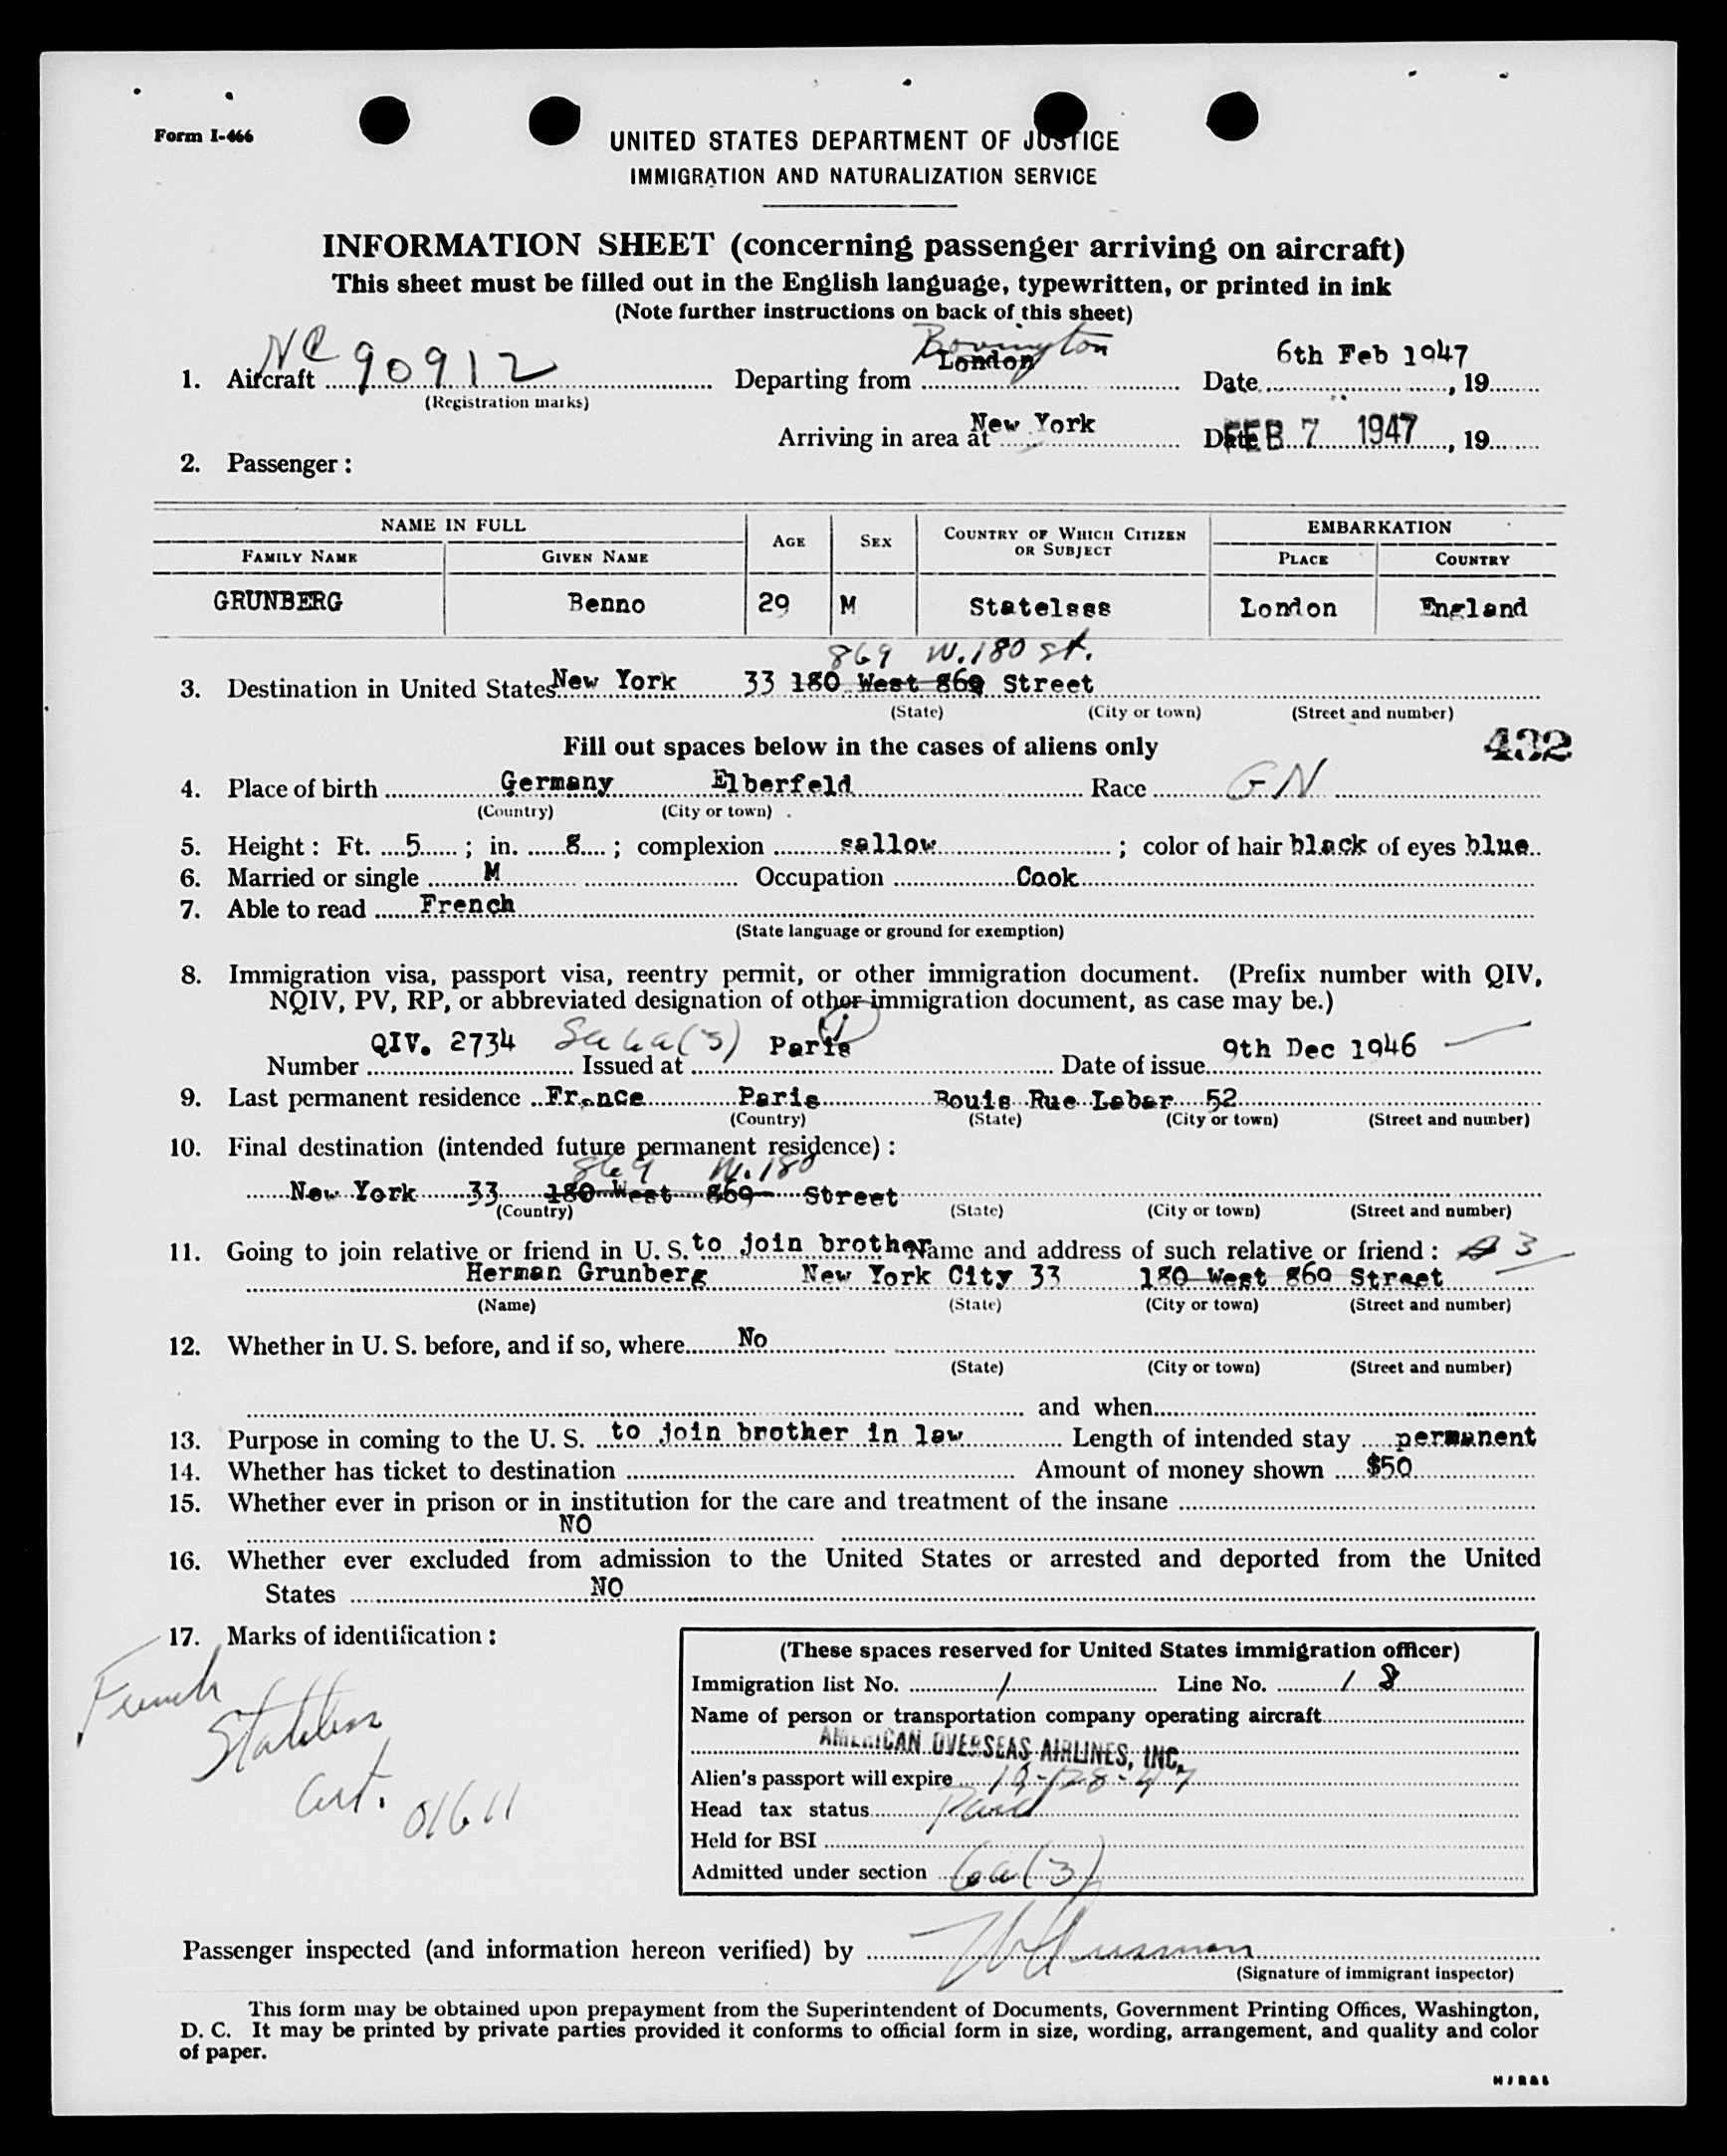 Form I-466
UNITED STATES DEPARTMENT OF JUSTICE
IMMIGRATION AND NATURALIZATION SERVICE
INFORMATION SHEET (concerning passenger arriving on aircraft)
This sheet must be filled out in the English language, typewritten, or printed in ink
(Note further instructions on back of this sheet)
Bovington
1. Aircraft NC 90912 Departing from London Date 6th Feb 1947, 19
(Registration marks)
Arriving in area at New York Date FEB 7 1947, 19
2. Passenger:
NAME IN FULL AGE SEX COUNTRY OF WHICH CITIZEN OR SUBJECT EMBARKATION
FAMILY NAME GIVEN NAME PLACE COUNTRY
GRUNBERG Benno 29 M Statelses London England
869 W. 180 st.
3. Destination in United States New York 33 180 West 869 Street
(State) (City or town) (Street and number)
Fill out spaces below in the cases of aliens only 432
4. Place of birth Germany Elberfeld Race GN
(Country) (City or town)
5. Height: Ft. 5; in. 8; complexion sallow; color of hair black of eyes blue
6. Married or single M Occupation Cook
7. Able to read French
(State language or ground for exemption)
8. Immigration visa, passport visa, reentry permit, or other immigration document. (Prefix number with QIV,
NQIV, PV, RP, or abbreviated designation of other immigration document, as case may be.)
Number QIV. 2734 6a(3) Issued at Paris Date of issue 9th Dec 1946
9. Last permanent residence France Paris Bouis Rue Labar 52
(Country) (State) (City or town) (Street and number)
10. Final destination (intended future permanent residence):
869 W. 180
New York 33 180 West 869 Street
(Country) (State) (City or town) (Street and number)
11. Going to join relative or friend in U. S. to join brother Name and address of such relative or friend: 3
Herman Grunberg New York City 33 180 West 869 Street
(Name) (State) (City or town) (Street and number)
12. Whether in U. S. before, and if so, where No
(State) (City or town) (Street and number)
and when
13. Purpose in coming to the U. S. to join brother in law Length of intended stay permanent
14. Whether has ticket to destination Amount of money shown $50
15. Whether ever in prison or in institution for the care and treatment of the insane
NO
16. Whether ever excluded from admission to the United States or arrested and deported from the United
States NO
17. Marks of identification:
French
Stateless
Cert. 01611
(These spaces reserved for United States immigration officer)
Immigration list No. 1 Line No. 1 8
Name of person or transportation company operating aircraft
AMERICAN OVERSEAS AIRLINES, INC.
Alien's passport will expire
Head tax status Paid
Held for BSI
Admitted under section 6a(3)
Passenger inspected (and information hereon verified) by
(Signature of immigrant inspector)
This form may be obtained upon prepayment from the Superintendent of Documents, Government Printing Offices, Washington,
D. C. It may be printed by private parties provided it conforms to official form in size, wording, arrangement, and quality and color
of paper.